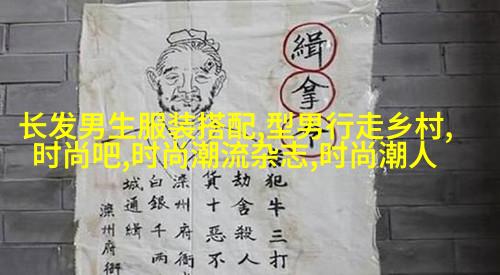 长发男生服装搭配,型男行走乡村,
时尚吧,时尚潮流杂志,时尚潮人
緝拿
犯牛三打
劫舍殺人
貨十惡不
滦州府衙
白銀千兩
城通緝
滦州府衙